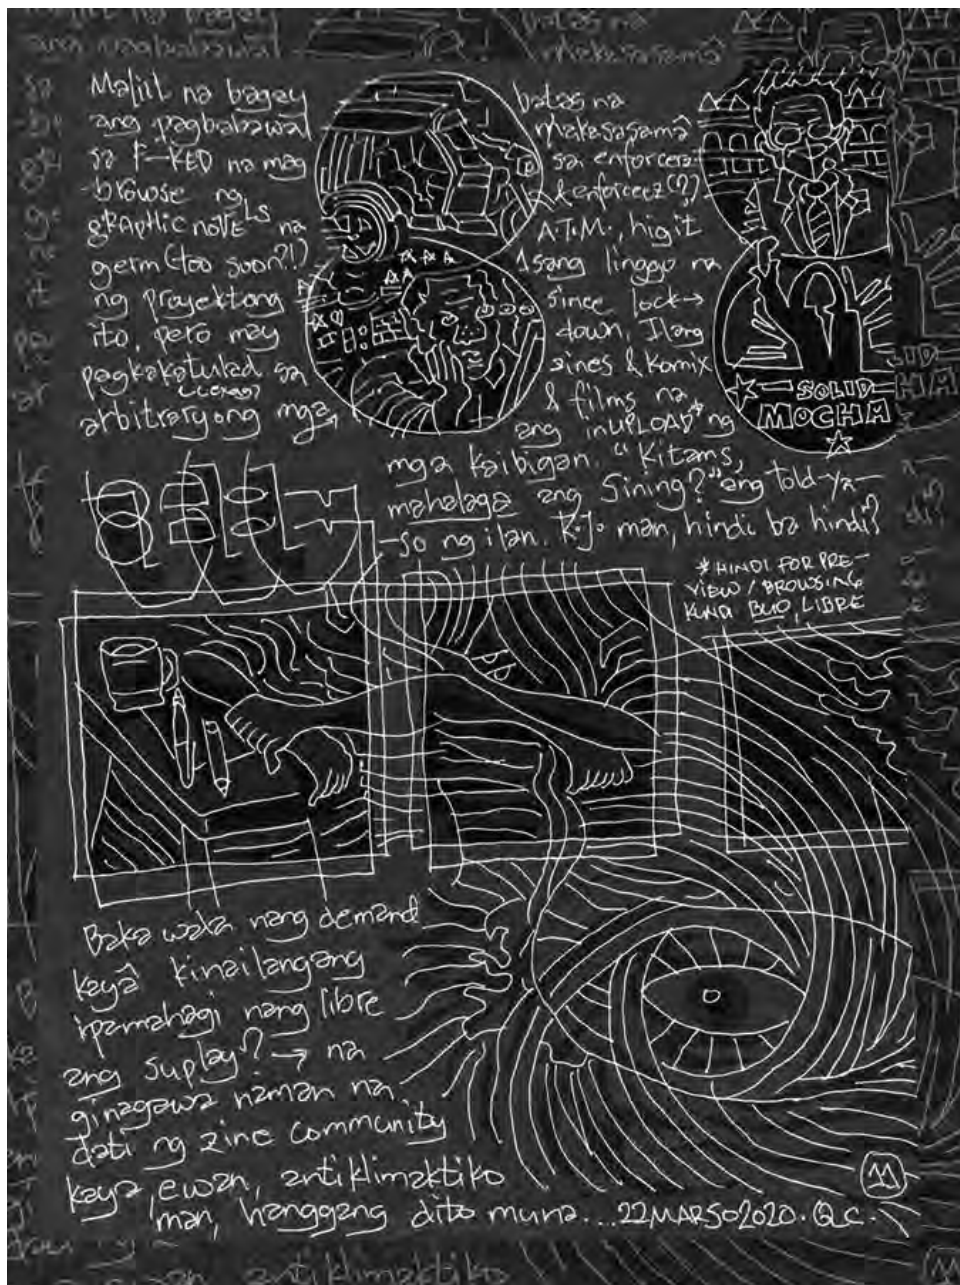 Maliit na bagay
ang pagbabawal
sa F-KED na mag
browse ng
graphic novels na
germ (too soon?!)
ng proyektong
ito, pero may
pagkakatulad sa
arbitraryong mga
batas na
makasasamâ
sa enforcerz
& enforceez(?)
A.T.M., higit
isang linggo na
since lock→
down. Ilang
zines & komix
& films na
ang inUPLOAD* ng
mga kaibigan. "Kitams,
mahalaga ang Sining?" ang told-ya-
-so ng ilan. K.J. man, hindi ba hindi?
*HINDI FOR PRE-
VIEW/BROWSING
KUNG BUO, LIBRE
SOLID
MOCHA
Baka wala nang demand
kayâ kinailangang
ipamahagi nang libre
ang suplay? → na
ginagawa naman na
dati ng zine community
kaya, ewan, antiklimaktiko
man, hanggang dito muna... 22MARSO2020. QC.
11